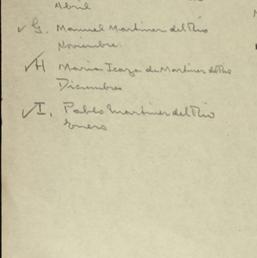 Abril
✓ G. Manuel Martinez del Rio
Noviembre
✓ H Maria Icaza de Martinez del Rio
Diciembre
✓ I. Pablo Martinez del Rio
Enero